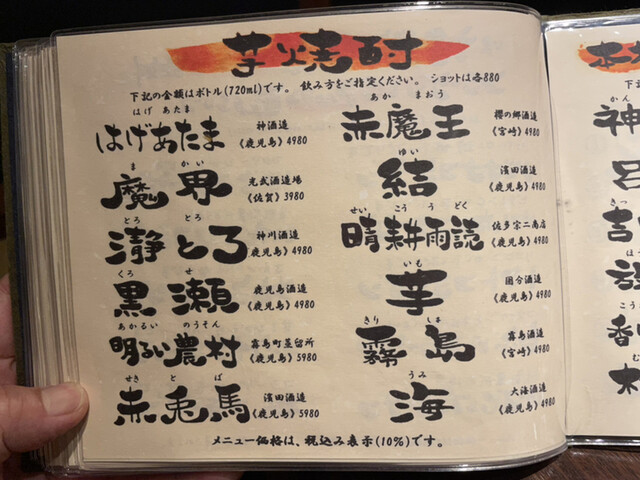 芋焼酎
下記の金額はボトル(720ml)です。 飲み方をご指定ください。 ショットは各880
はげ あたま
はげあたま
神酒造
《鹿児島》4980
ま かい
魔界
光武酒造場
《佐賀》3980
とろ とろ
瀞とろ
神川酒造
《鹿児島》4980
くろ せ
黒瀬
鹿児島酒造
《鹿児島》4980
あかるい のうそん
明るい農村
霧島町蒸留所
《鹿児島》5980
せき と ば
赤兎馬
濱田酒造
《鹿児島》5980
あか まおう
赤魔王
櫻の郷酒造
《宮崎》4980
ゆい
結
濱田酒造
《鹿児島》4980
せい こう う どく
晴耕雨読
佐多宗二商店
《鹿児島》4980
いも
芋
国分酒造
《鹿児島》4980
きり しま
霧島
霧島酒造
《宮崎》4980
うみ
海
大海酒造
《鹿児島》4980
メニュー価格は、税込み表示(10%)です。
かん
神
きっ
吉
こう
香
む